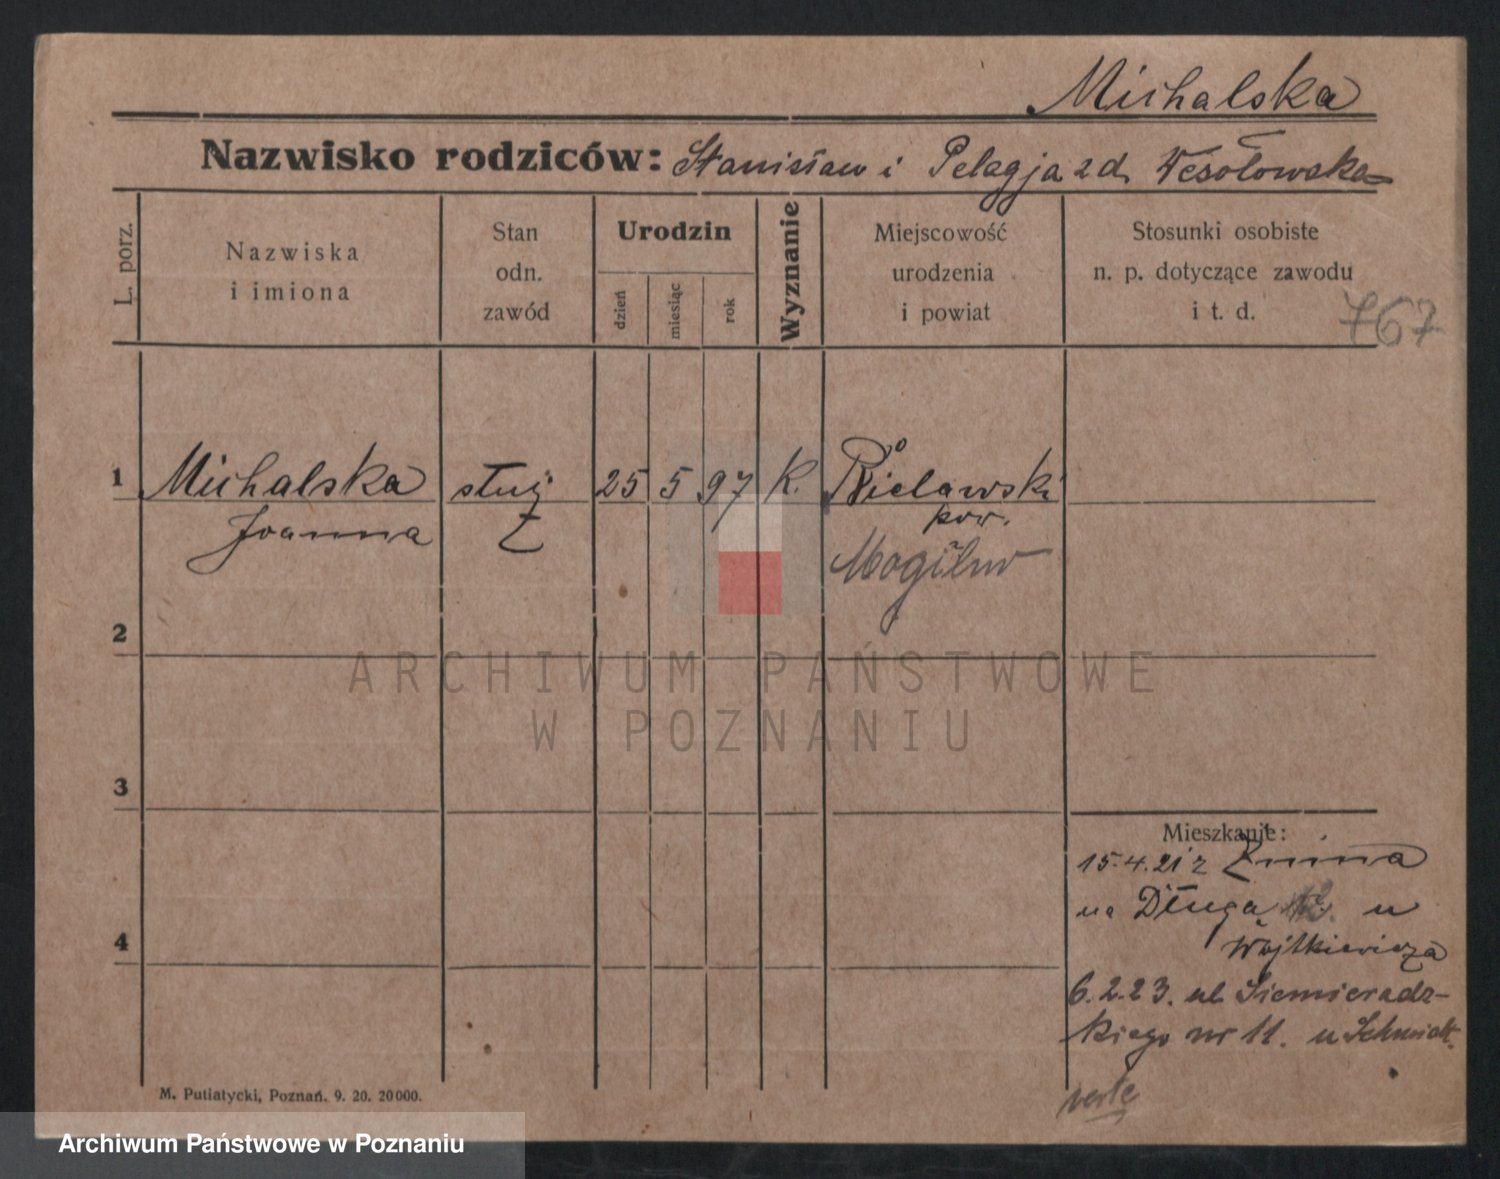 Michalska
Nazwisko rodziców: Stanisław i Pelagja z d. Wesołowska
L. porz.
Nazwiska
i imiona
Stan
odn.
zawód
Urodzin
dzień
miesiąc
rok
Wyznanie
Miejscowość
urodzenia
i powiat
Stosunki osobiste
n. p. dotyczące zawodu
i t. d.
767
1
Michalska
Joanna
służ
25
5
97
K.
Bielawski
pow.
Mogilno
2
3
4
Mieszkanie:
15.4.21 z Żnina
na Długa 12. u
Wojtkiewicza
6.2.23. ul. Siemieradz-
kiego nr 11. u Schmidt.
verte
M. Putiatycki, Poznań. 9. 20. 20000.
ARCHIWUM PAŃSTWOWE
W POZNANIU
Archiwum Państwowe w Poznaniu